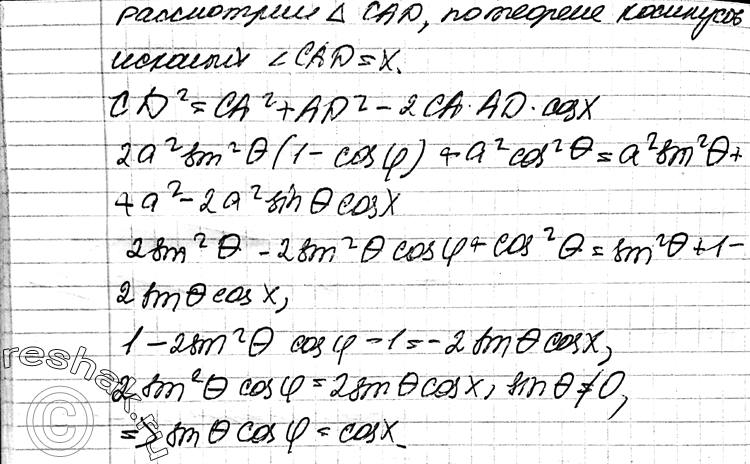 рассмотрим Δ CAD, по теореме косинусов
искомый ∠CAD=x.
CD²=CA²+AD²-2CA·AD·cosx
2a²sin²θ(1-cosφ)+a²cos²θ=a²sin²θ+
+a²-2a²sinθcosx
2sin²θ-2sin²θcosφ+cos²θ=sin²θ+1-
2sinθcosx,
1-2sin²θ cosφ-1=-2sinθcosx,
2sin²θcosφ=2sinθcosx, sinθ≠0,
=> sinθcosφ=cosx.
reshak.ru
©